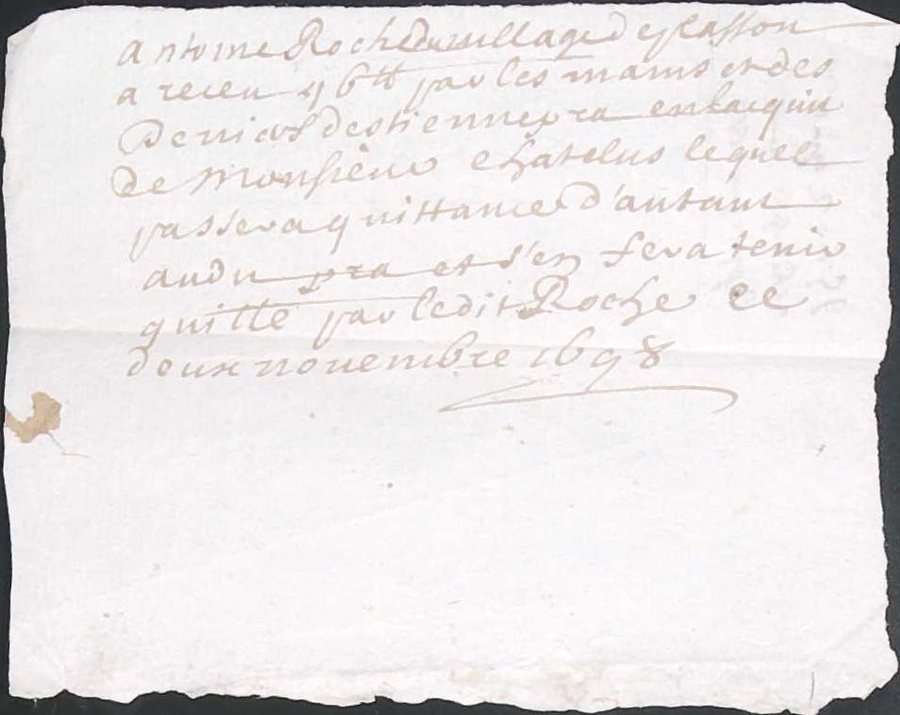 antoine Roche du village deglasson
a receu 46tt par les mains et des
deniers destienne pra en lacquit
de Monsieur Chatelus lequel
passera quittance d'autant
audit pra et s'en fera tenir
quitte par ledit Roche ce
deux novembre 1698